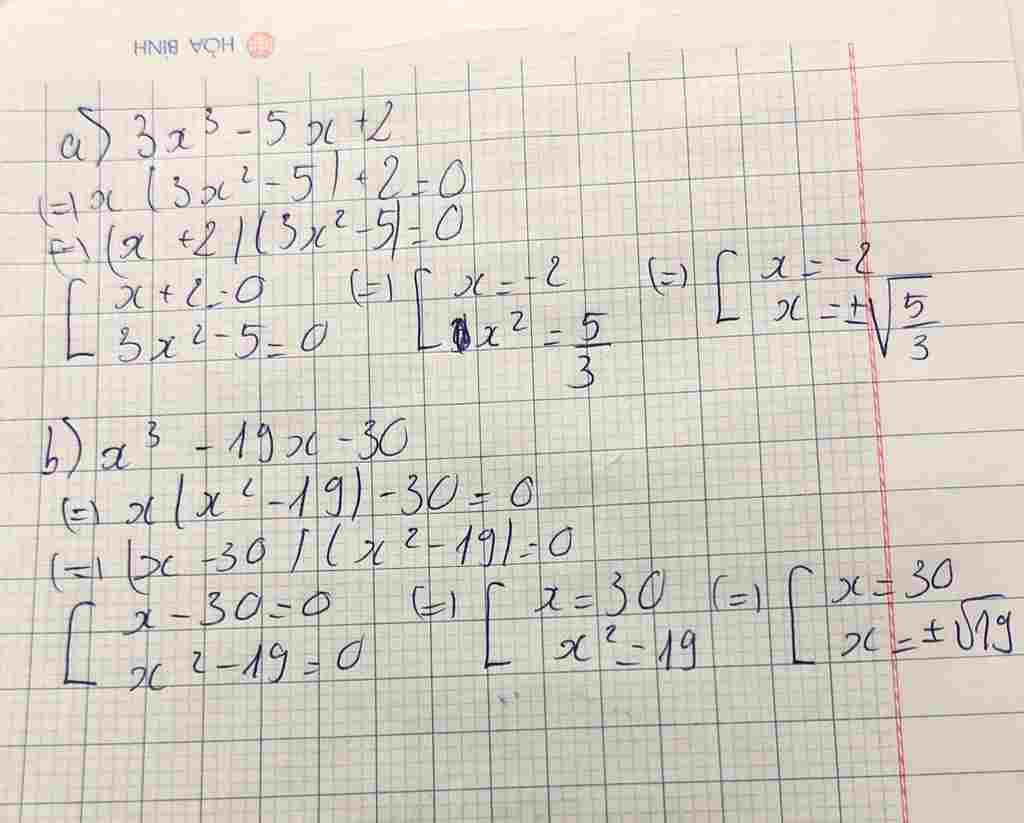 HÒA BÌNH
a) 3x³ - 5x + 2
(=) x (3x² - 5) + 2 = 0
(=) (x + 2) (3x² - 5) = 0
[ x + 2 = 0 (=) [ x = -2 (=) [ x = -2
3x² - 5 = 0 x² = 5/3 x = ±√5/3
b) x³ - 19x - 30
(=) x (x² - 19) - 30 = 0
(=) (x - 30) (x² - 19) = 0
[ x - 30 = 0 (=) [ x = 30 (=) [ x = 30
x² - 19 = 0 x² = 19 x = ±√19